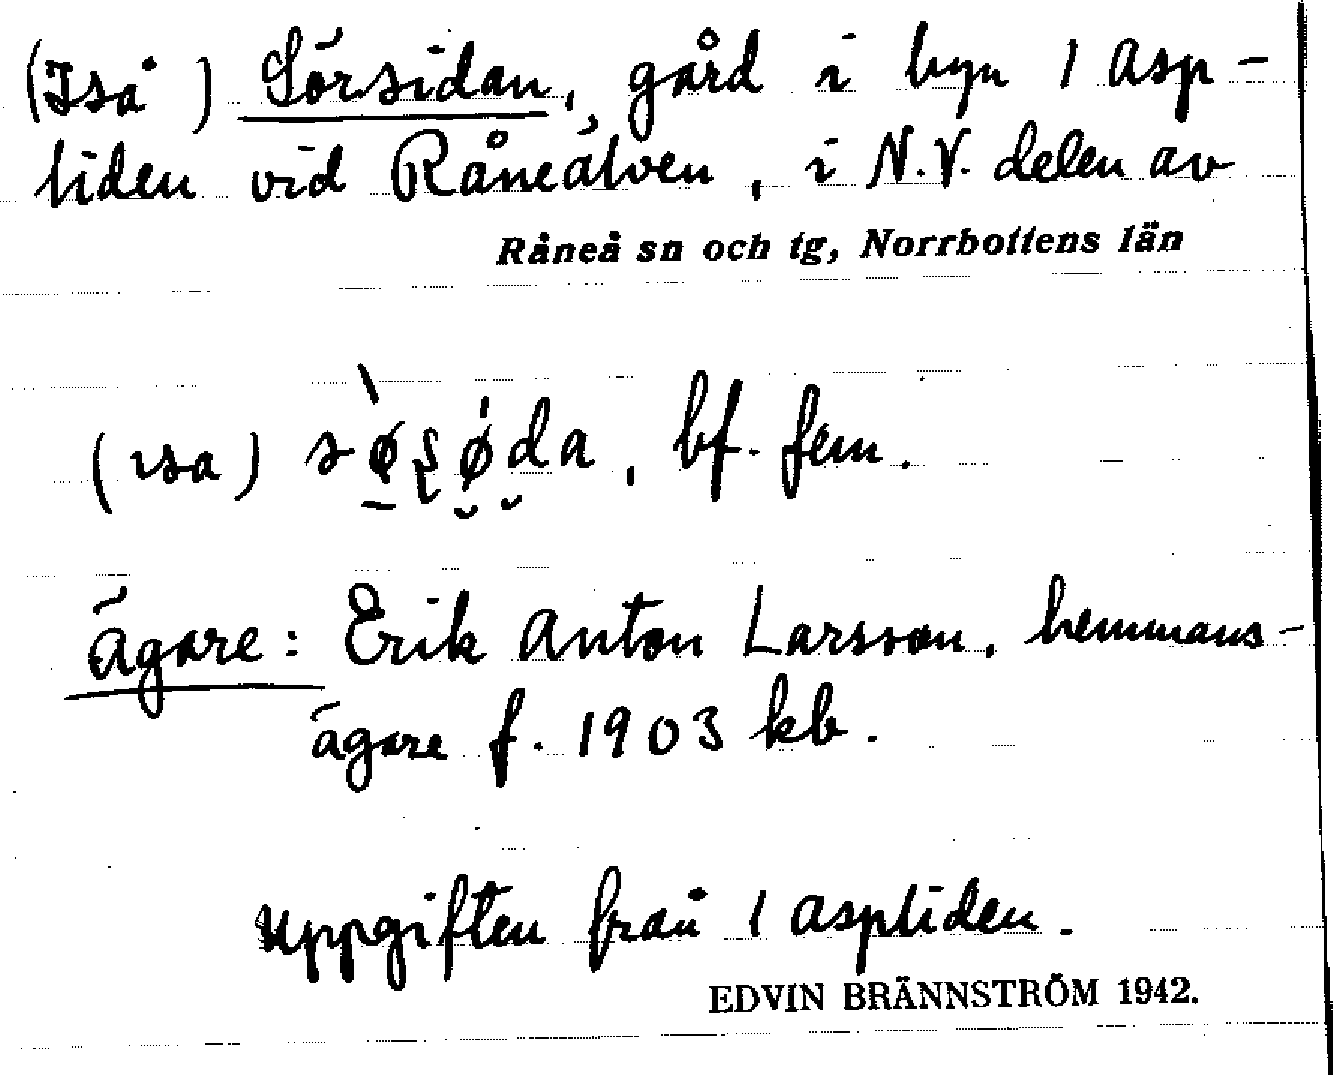 (Iså) Sörsidan, gård i byn 1 Asp-
liden vid Råneälven, i N.V. delen av
Råneå sn och tg, Norrbottens län
(ısa) sø̱̀ʂǿ̮d̮a, bf. fem.
ägare: Erik Anton Larsson, hemmans-
ägare f. 1903 kb.
Uppgiften från 1 Aspliden.
EDVIN BRÄNNSTRÖM 1942.